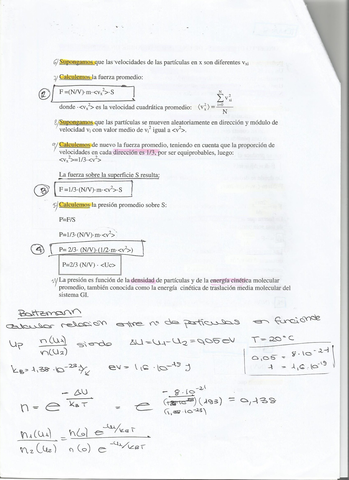 Supongamos que las velocidades de las partículas en x son diferentes vₓᵢ
Calculemos la fuerza promedio:
2 F =(N/V)·m·<vₓ²>·S
donde <vₓ²> es la velocidad cuadrática promedio: ⟨vₓ²⟩ = Σ vₓᵢ² / N
Supongamos que las partículas se mueven aleatoriamente en dirección y módulo de
velocidad vᵢ con valor medio de vᵢ² igual a <v²>.
Calculemos de nuevo la fuerza promedio, teniendo en cuenta que la proporción de
velocidades en cada dirección es 1/3, por ser equiprobables, luego:
<vₓ²>=1/3·<v²>
La fuerza sobre la superficie S resulta:
3 F =1/3·(N/V)·m·<v²>·S
Calculemos la presión promedio sobre S:
P=F/S
P=1/3·(N/V)·m·<v²>
4 P= 2/3· (N/V)·(1/2·m·<v²>)
P=2/3·(N/V) · <Uc>
La presión es función de la densidad de partículas y de la energía cinética molecular
promedio, también conocida como la energía cinética de traslación media molecular del
sistema GI.
Boltzmann
calcular relacion entre nº de partículas en función de
Up n(u₁)/n(u₂) siendo ΔU = U₁-U₂ = 0,05 eV T = 20°C
0,05 = 8·10⁻²¹
1 = 1,6·10⁻¹⁹
k_B = 1,38·10⁻²³ J/k eV = 1,6·10⁻¹⁹ J
n = e^(-ΔU/k_BT) = e^(-8·10⁻²¹/(1,38·10⁻²³)(293)) = 0,138
n₁(u₁)/n₂(u₂) = n(0) e^(-u₁/k_BT) / n(0) e^(-u₂/k_BT)